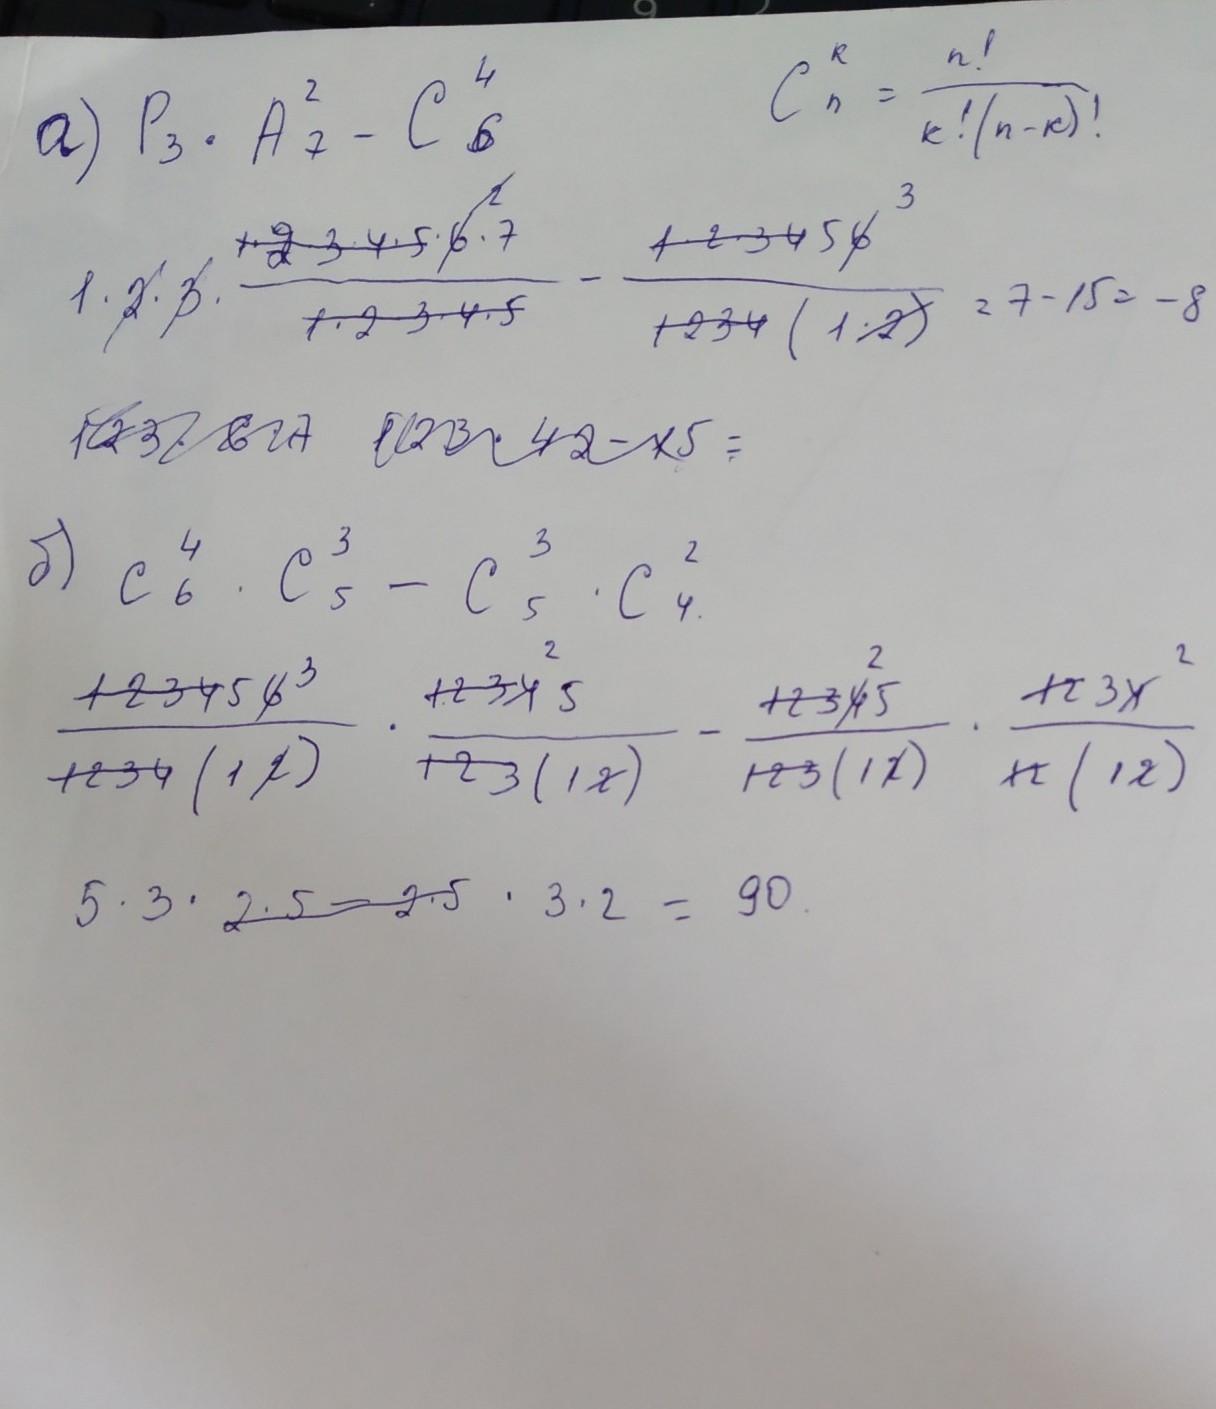 а) P₃ · A₇² − C₆⁴
Cₙᵏ = n! / k!(n−k)!
1·2·3· (1·2·3·4·5·6²·7) / (1·2·3·4·5) − (1·2·3·4 5 6³) / (1 2 3 4 (1·2)) = 7−15= −8
б) C₆⁴ · C₅³ − C₅³ · C₄².
(1 2 3 4 5 6³) / (1 2 3 4 (1 2)) · (1 2 3 4² 5) / (1 2 3 (1 2)) − (1 2 3 4² 5) / (1 2 3 (1 2)) · (1 2 3 4²) / (1 2 (1 2))
5·3· 2·5 − 2·5 · 3·2 = 90.